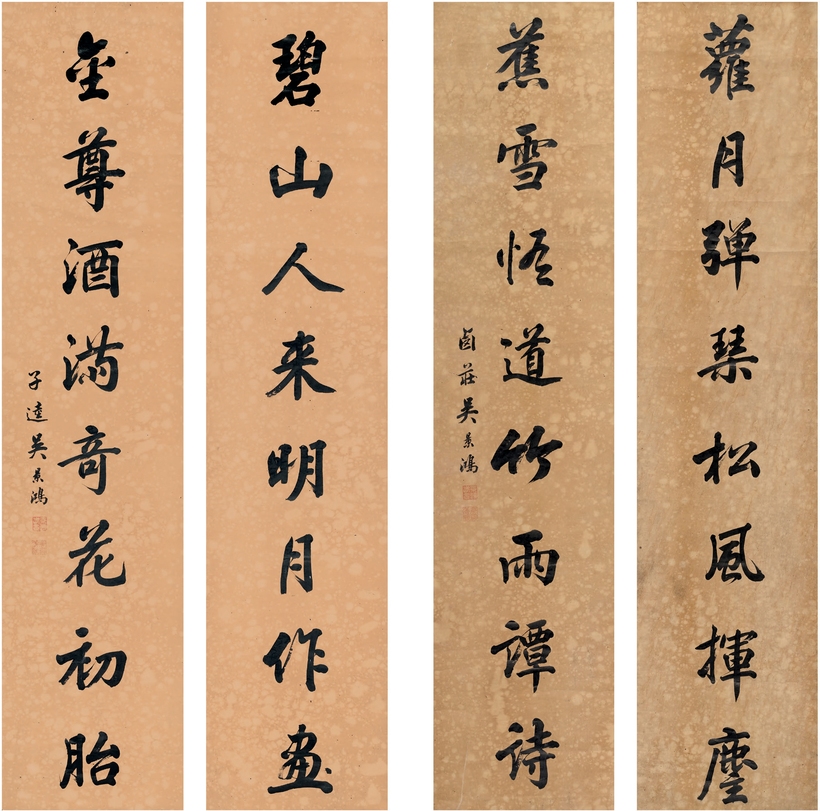 蘿月彈琴松風揮麈
蕉雪悟道竹雨譚詩
卣莊吳景鴻
碧山人来明月作画
金尊酒滿奇花初胎
子達吳景鴻